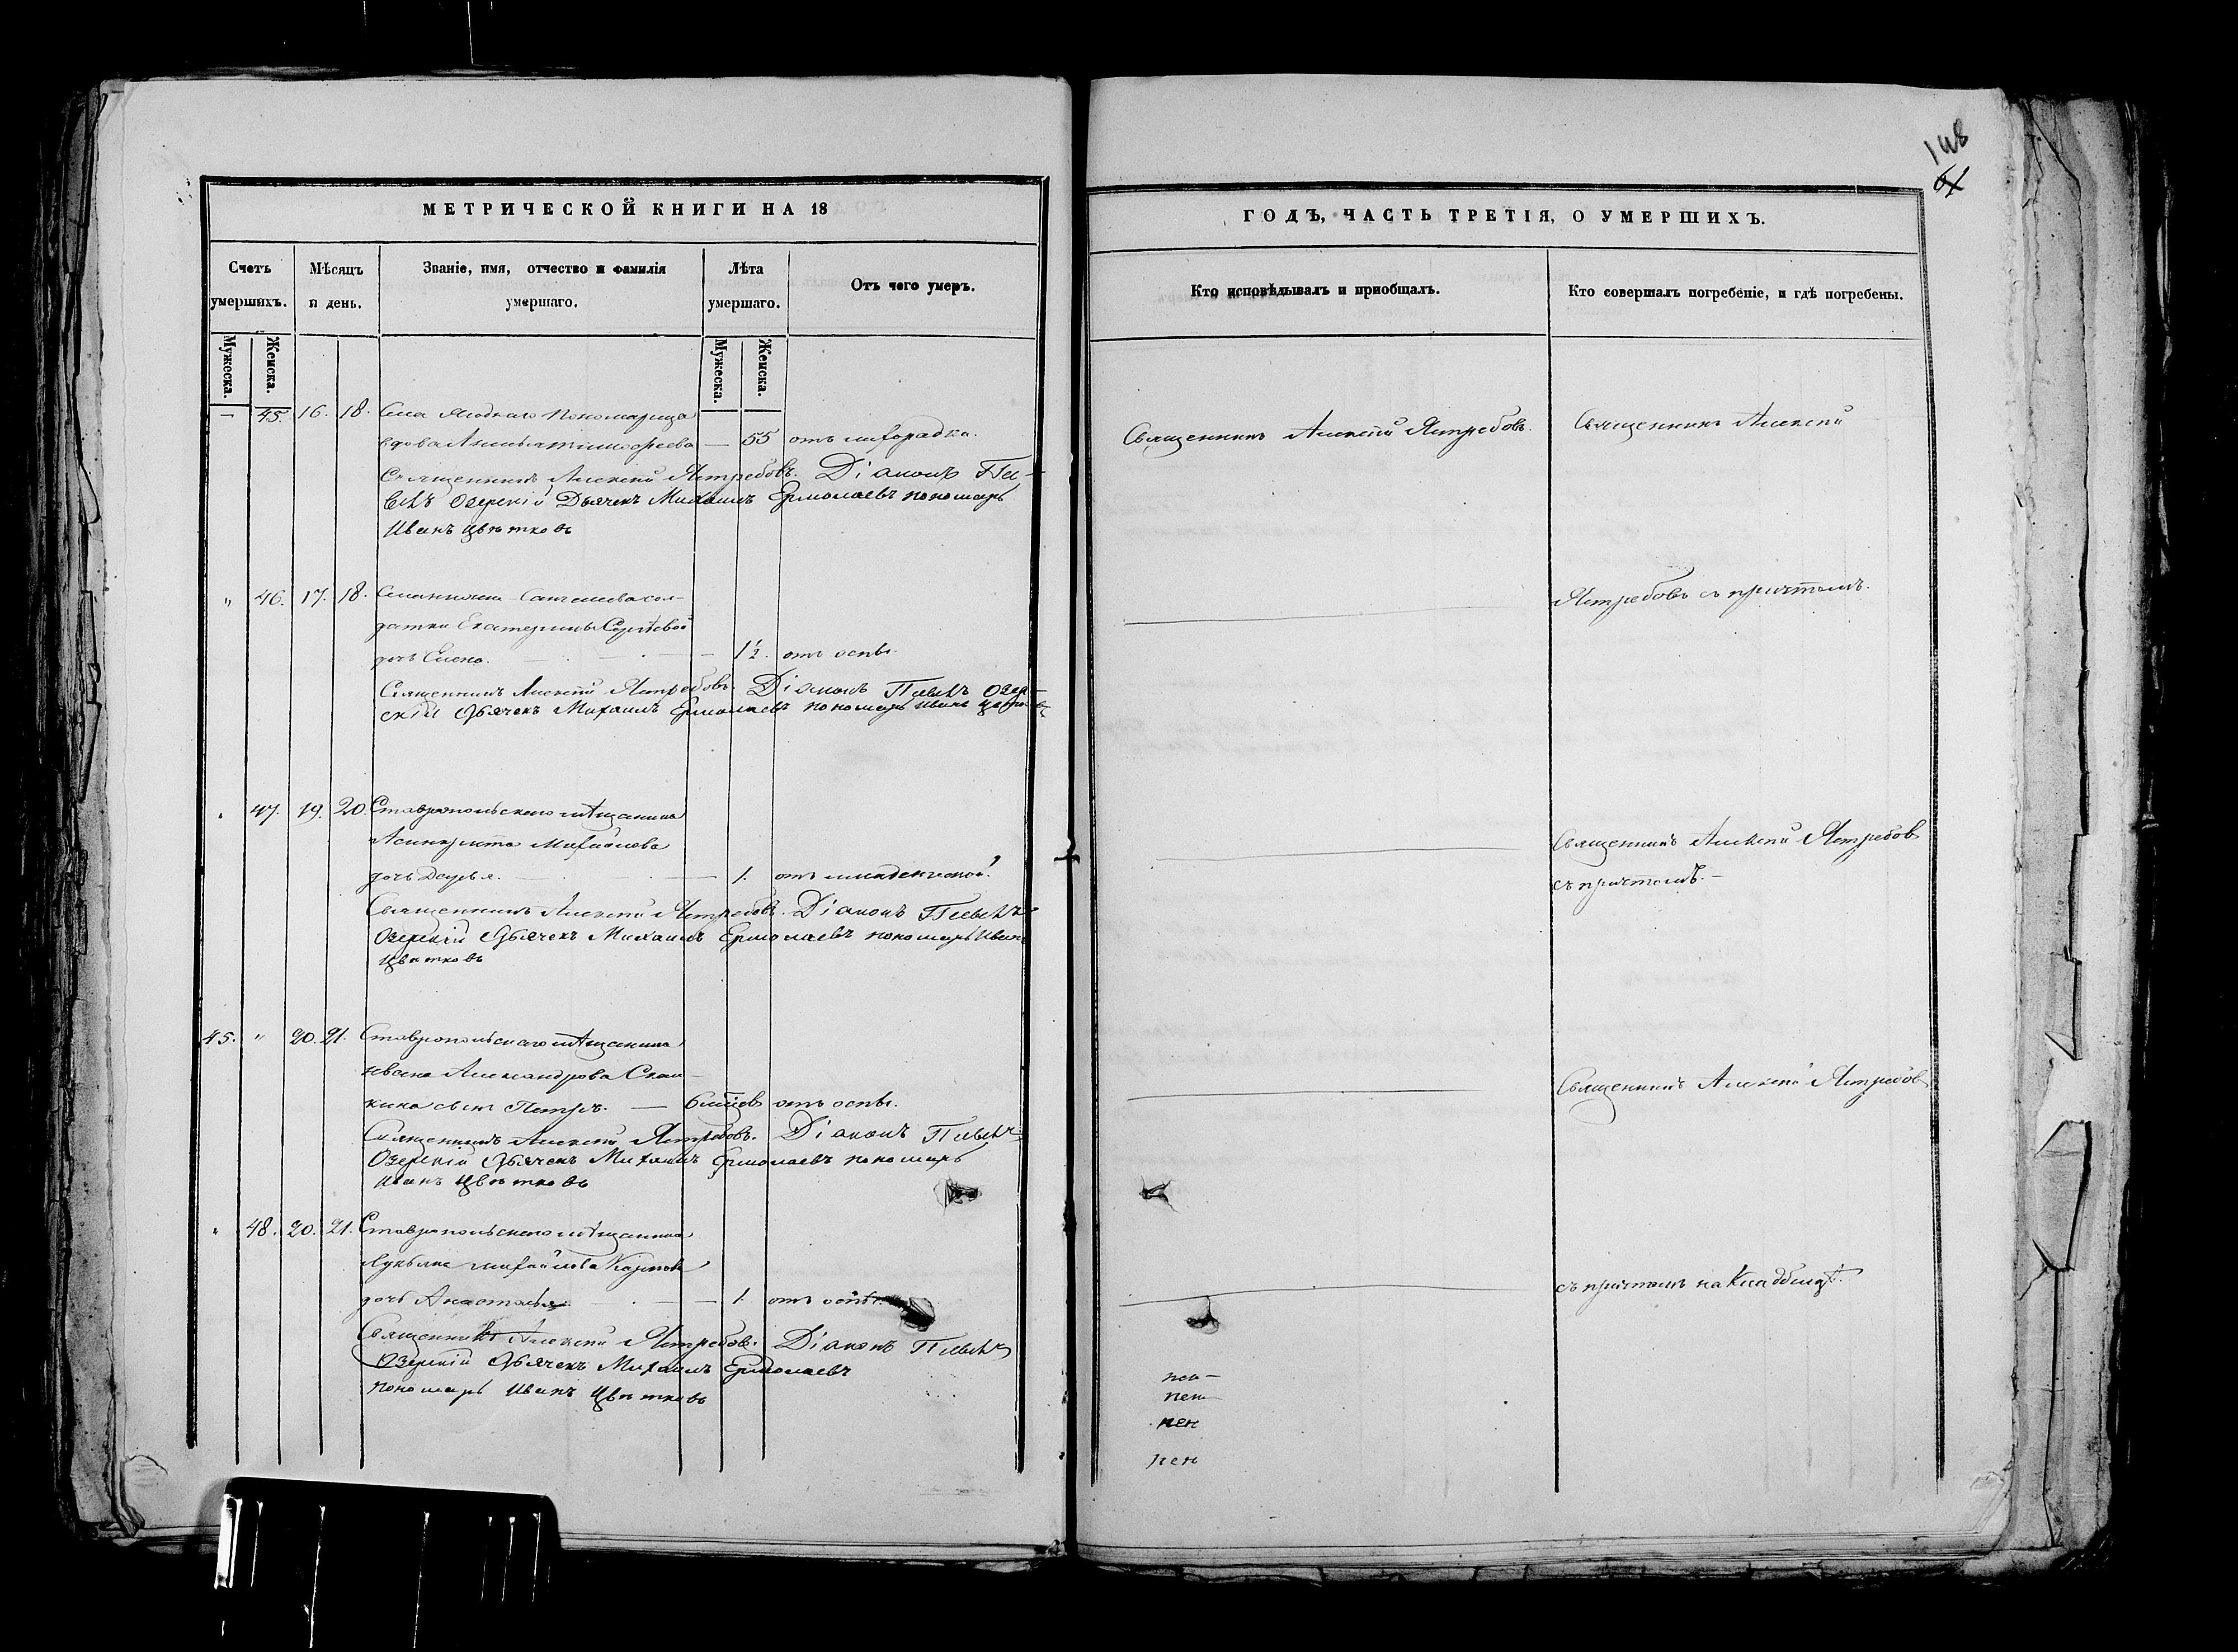 148
МЕТРИЧЕСКОЙ КНИГИ НА 18
Счетъ умершихъ.
Мѣсяцъ и день.
Званіе, имя, отчество и фамилія умершаго.
Лѣта умершаго.
Отъ чего умеръ.
Мужеска. Женска.
Мужеска. Женска.
— 45. 16. 18. Села Ягоднаго Пономарица
вдова Тимофеева — 55 отъ лихорадки.
Священникъ Алексѣй Ястребовъ. Діаконъ Па-
велъ Озерскій Дьячекъ Михаилъ Ермолаевъ пономарь
Иванъ Цвѣтковъ
" 46. 17. 18. сол-
датки Екатерины Сергѣевой
дочь Елена. — 1½. отъ оспы.
Священникъ Алексѣй Ястребовъ. Діаконъ Павелъ Озер-
скій Дьячекъ Михаилъ Ермолаевъ пономарь Иванъ Цвѣтковъ
" 47. 19. 20. Ставропольскаго мѣщанина
Асинкрита Михайлова
дочь Дарья. — 1. отъ младенческой.
Священникъ Алексѣй Ястребовъ. Діаконъ Павелъ
Озерскій Дьячекъ Михаилъ Ермолаевъ пономарь Иванъ
Цвѣтковъ
45. " 20. 21. Ставропольскаго мѣщанина
Ивана Александрова
сынъ Петръ. — 6 мѣсяцев отъ оспы.
Священникъ Алексѣй Ястребовъ. Діаконъ Павелъ
Озерскій Дьячекъ Михаилъ Ермолаевъ пономарь
Иванъ Цвѣтковъ
" 48. 20. 21. Ставропольскаго мѣщанина
Лукьяна Михайлова Карпова
дочь Анастасья. — 1. отъ оспы.
Священникъ Алексѣй Ястребовъ. Діаконъ Павелъ
Озерскій Дьячекъ Михаилъ Ермолаевъ
пономарь Иванъ Цвѣтковъ
ГОДЪ, ЧАСТЬ ТРЕТІЯ, О УМЕРШИХЪ.
Кто исповѣдывалъ и пріобщалъ.
Кто совершалъ погребеніе, и гдѣ погребены.
Священникъ Алексѣй Ястребовъ.
Священникъ Алексѣй
Ястребовъ съ причтомъ.
Священникъ Алексѣй Ястребовъ
съ причтомъ.
Священникъ Алексѣй Ястребовъ
съ причтомъ на кладбищѣ.
пен
пен
пен